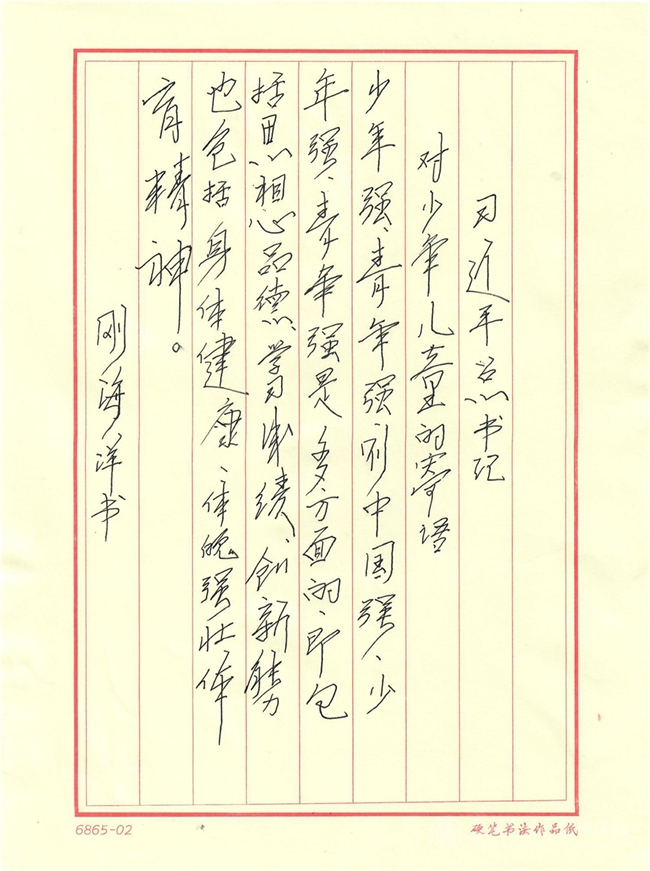 习近平总书记
对少年儿童的寄语
少年强、青年强则中国强、少
年强、青年强是多方面的、即包
括思想品德、学习成绩、创新能力
也包括身体健康、体魄强壮体
育精神。
刚海洋书
6865-02
硬笔书法作品纸